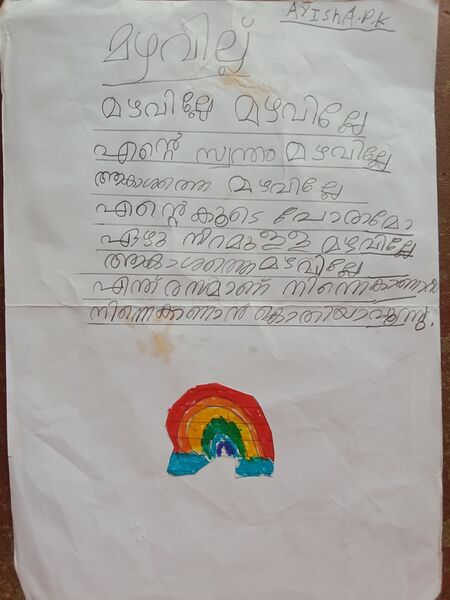 AYIShA.P.K
മഴവില്ല്
മഴവില്ലേ മഴവില്ലേ
എന്റെ സ്വന്തം മഴവില്ലേ
ആകാശത്തെ മഴവില്ലേ
എന്റെകൂടെ പോരാമോ
ഏഴു നിറമുളള മഴവില്ലേ
ആകാശത്തെ മഴവില്ലേ
എന്ത് രസമാണ് നിന്നെകാണാൻ
നിന്നെക്കണാൻ കൊതിയാവുന്നു.